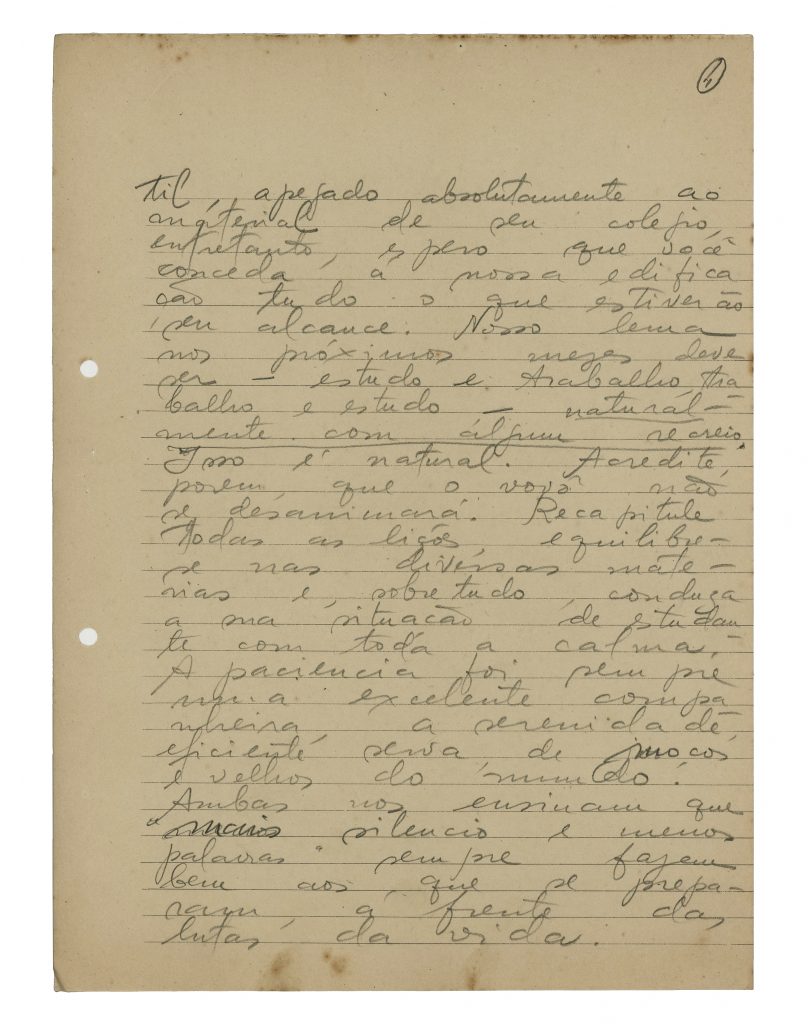 4
til, apegado absolutamente ao
material de seu colegio,
entretanto, espero que você
conceda á nossa edifica
ção tudo o que estiver ao
seu alcance. Nosso lema
nos próximos mezes deve
ser – estudo e trabalho, tra
balho e estudo – natural-
mente com algum recreio.
Isso é natural. Acredite,
porem, que o vovô não
se desanimará. Recapitule
todas as liçôs, equilibre-
se nas diversas mate-
rias e, sobretudo, conduza
a sua situação de estudan
te com toda a calma.
A paciencia foi sempre
uma excelente compa
nheira, a serenidade,
eficiente serva, de moços
e velhos do mundo.
Ambas nos ensinam que
"mais silencio e menos
palavras" sempre fazem
bem aos que se prepa-
ram, á frente das
lutas da vida.